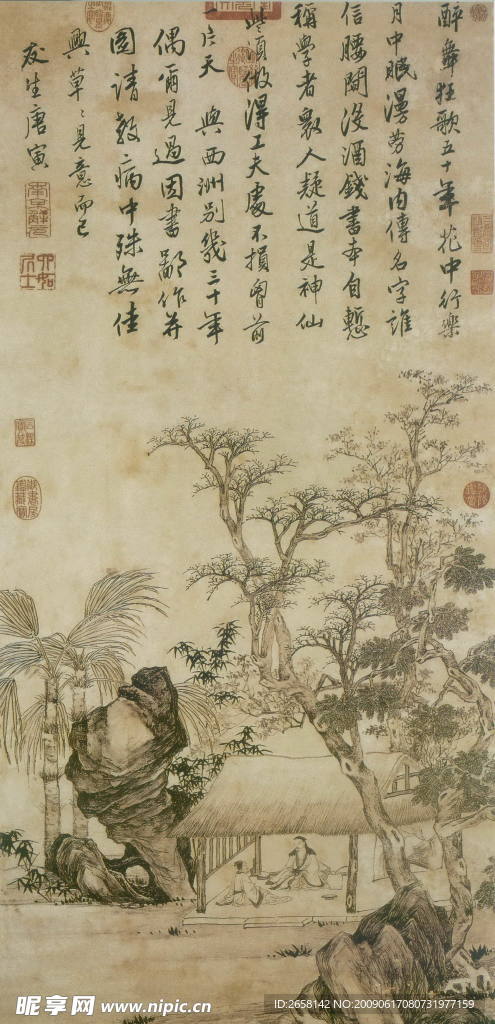 醉舞狂歌五十年花中行樂
月中眠漫勞海內傳名字誰
信腰間沒酒錢書本自慙
稱學者衆人疑道是神仙
些須做得工夫處不損胷前
一片天 與西洲別幾三十年
偶爾見過因書鄙作并
圖請教病中殊無佳
興草々見意而已
友生唐寅
南京解元
六如居士
昵享网 www.nipic.cn
ID:2658142 NO:20090617080731977159